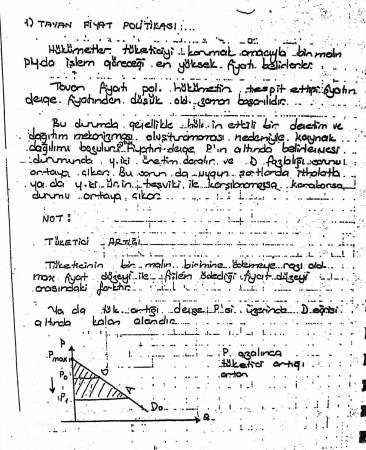 1) TAVAN FİYAT POLİTİKASI:
Hükümetler tüketiciyi korumak amacıyla bir malın
p'yda işlem göreceği en yüksek fiyatı belirlerler.
Tavan fiyatı pol. hükümetin tespit ettiği fiyatın
denge fiyatından düşük old. zaman başarılıdır.
Bu durumda genellikle hük.in etkili bir denetim ve
dağıtım mekanizması oluşturamaması nedeniyle kaynak
dağılımı bozulur. Fiyatın denge P'ın altında belirlenmesi
durumunda y.içi üretim daralır ve D fazlalığı sorunu
ortaya çıkar. Bu sorun da uygun şartlarda ithalatla
ya da y.içi ür.in teşviki ile karşılanamazsa karaborsa
durumu ortaya çıkar.
NOT:
TÜKETİCİ ARTIĞI
Tüketicinin bir malın birimine ödemeye razı old.
max fiyat düzeyi ile fiilen ödediği fiyat düzeyi
arasındaki farktır.
Ya da tük. artığı denge P'si üzerinde D eğrisi
altında kalan alandır.
P
P max
P0
P1
A
D0
Q
P azalınca
tüketici artığı
artar